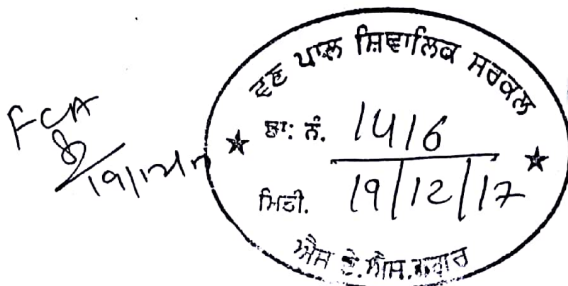 FCA
19/12/17
ਵਣ ਪਾਲ ਸ਼ਿਵਾਲਿਕ ਸਰਕਲ
ਡਾ: ਨੰ. 1416
ਮਿਤੀ. 19/12/17
ਐਸ.ਏ.ਐਸ.ਨਗਰ